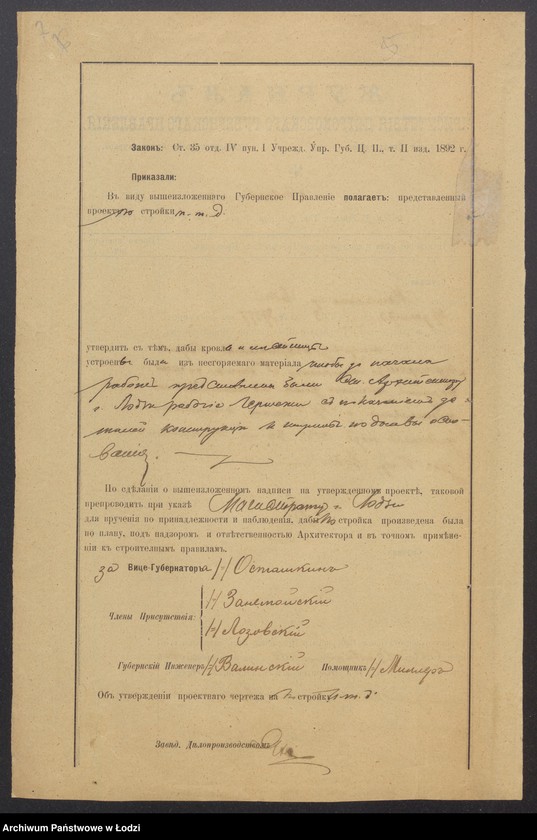 5
Законъ: Ст. 35 отд. IV пун. I Учрежд. Упр. Губ. Ц. П., т. II изд. 1892 г.
Приказали:
Въ виду вышеизложеннаго Губернское Правленіе полагаетъ: представленный
проектъ стройки п. т. д.
утвердить съ тѣмъ, дабы кровля и
устроены были изъ несгораемаго матеріала чтобы до начала
работъ представлены были Архитектору
г. Лодзи рабочіе чертежи съ показаніемъ де-
талей конструкціи и
По сдѣланіи о вышеизложенномъ надписи на утвержденномъ проектѣ, таковой
препроводить при указѣ Магистрату г. Лодзи
для врученія по принадлежности и наблюденія, дабы постройка произведена была
по плану, подъ надзоромъ и отвѣтственностью Архитектора и въ точномъ примѣне-
ніи къ строительнымъ правиламъ.
за Вице-Губернатора /-/ Осташкинъ
Члены Присутствія:
/-/ Лозовскій
Губернскій Инженеръ /-/ Помощникъ /-/ Миллеръ
Объ утвержденіи проектнаго чертежа на постройку и т. д.
Завѣд. Дѣлопроизводствомъ
Archiwum Państwowe w Łodzi